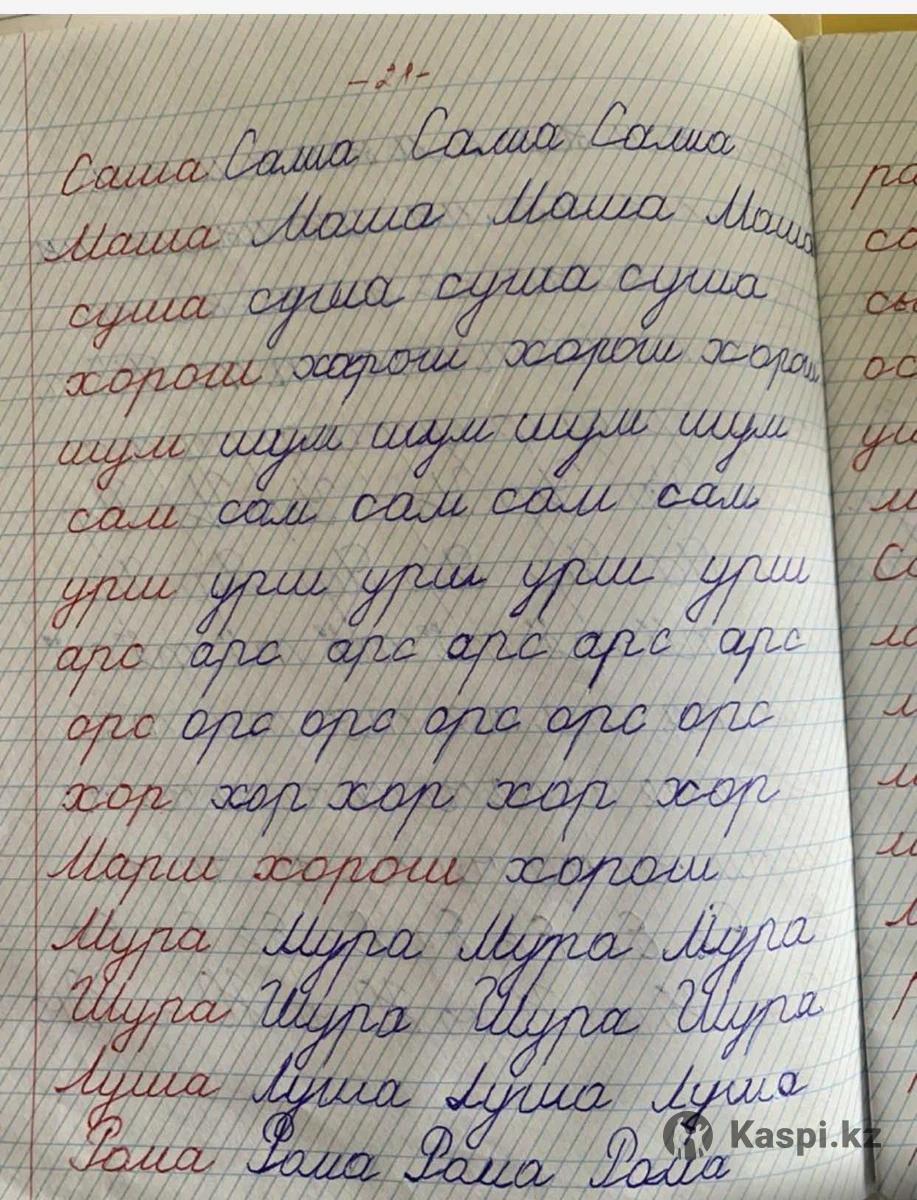 -21-
Саша Саша Саша Саша
Маша Маша Маша Маша
суша суша суша суша
хорош хорош хорош хорош
шум шум шум шум шум
сам сам сам сам сам
урш урш урш урш урш
арс арс арс арс арс арс
орс орс орс орс орс орс
хор хор хор хор хор
Марш хорош хорош
Мура Мура Мура Мура
Шура Шура Шура Шура
Луша Луша Луша Луша
Рома Рома Рома Рома
Kaspi.kz